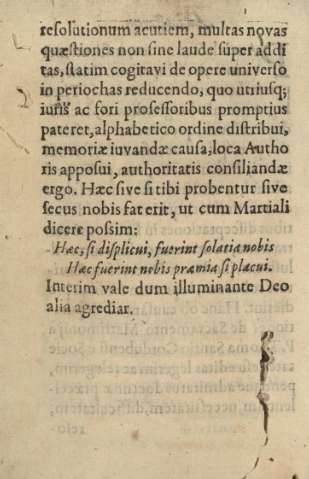 resolutionum acutiem, multas novas
quæstiones non sine laude super addi
tas, statim cogitavi de opere universo
in periochas reducendo, quo utriusq;
iuris ac fori professoribus promptius
pateret, alphabetico ordine distribui,
memoriæ iuvandæ causa, loca Autho
ris apposui, authoritatis consiliandæ
ergo. Hæc sive si tibi probentur sive
secus nobis fat erit, ut cum Martiali
dicere possim:
Hæc, si displicui, fuerint solatia nobis
Hæc fuerint nobis præmia si placui.
Interim vale dum illuminante Deo
alia agrediar.